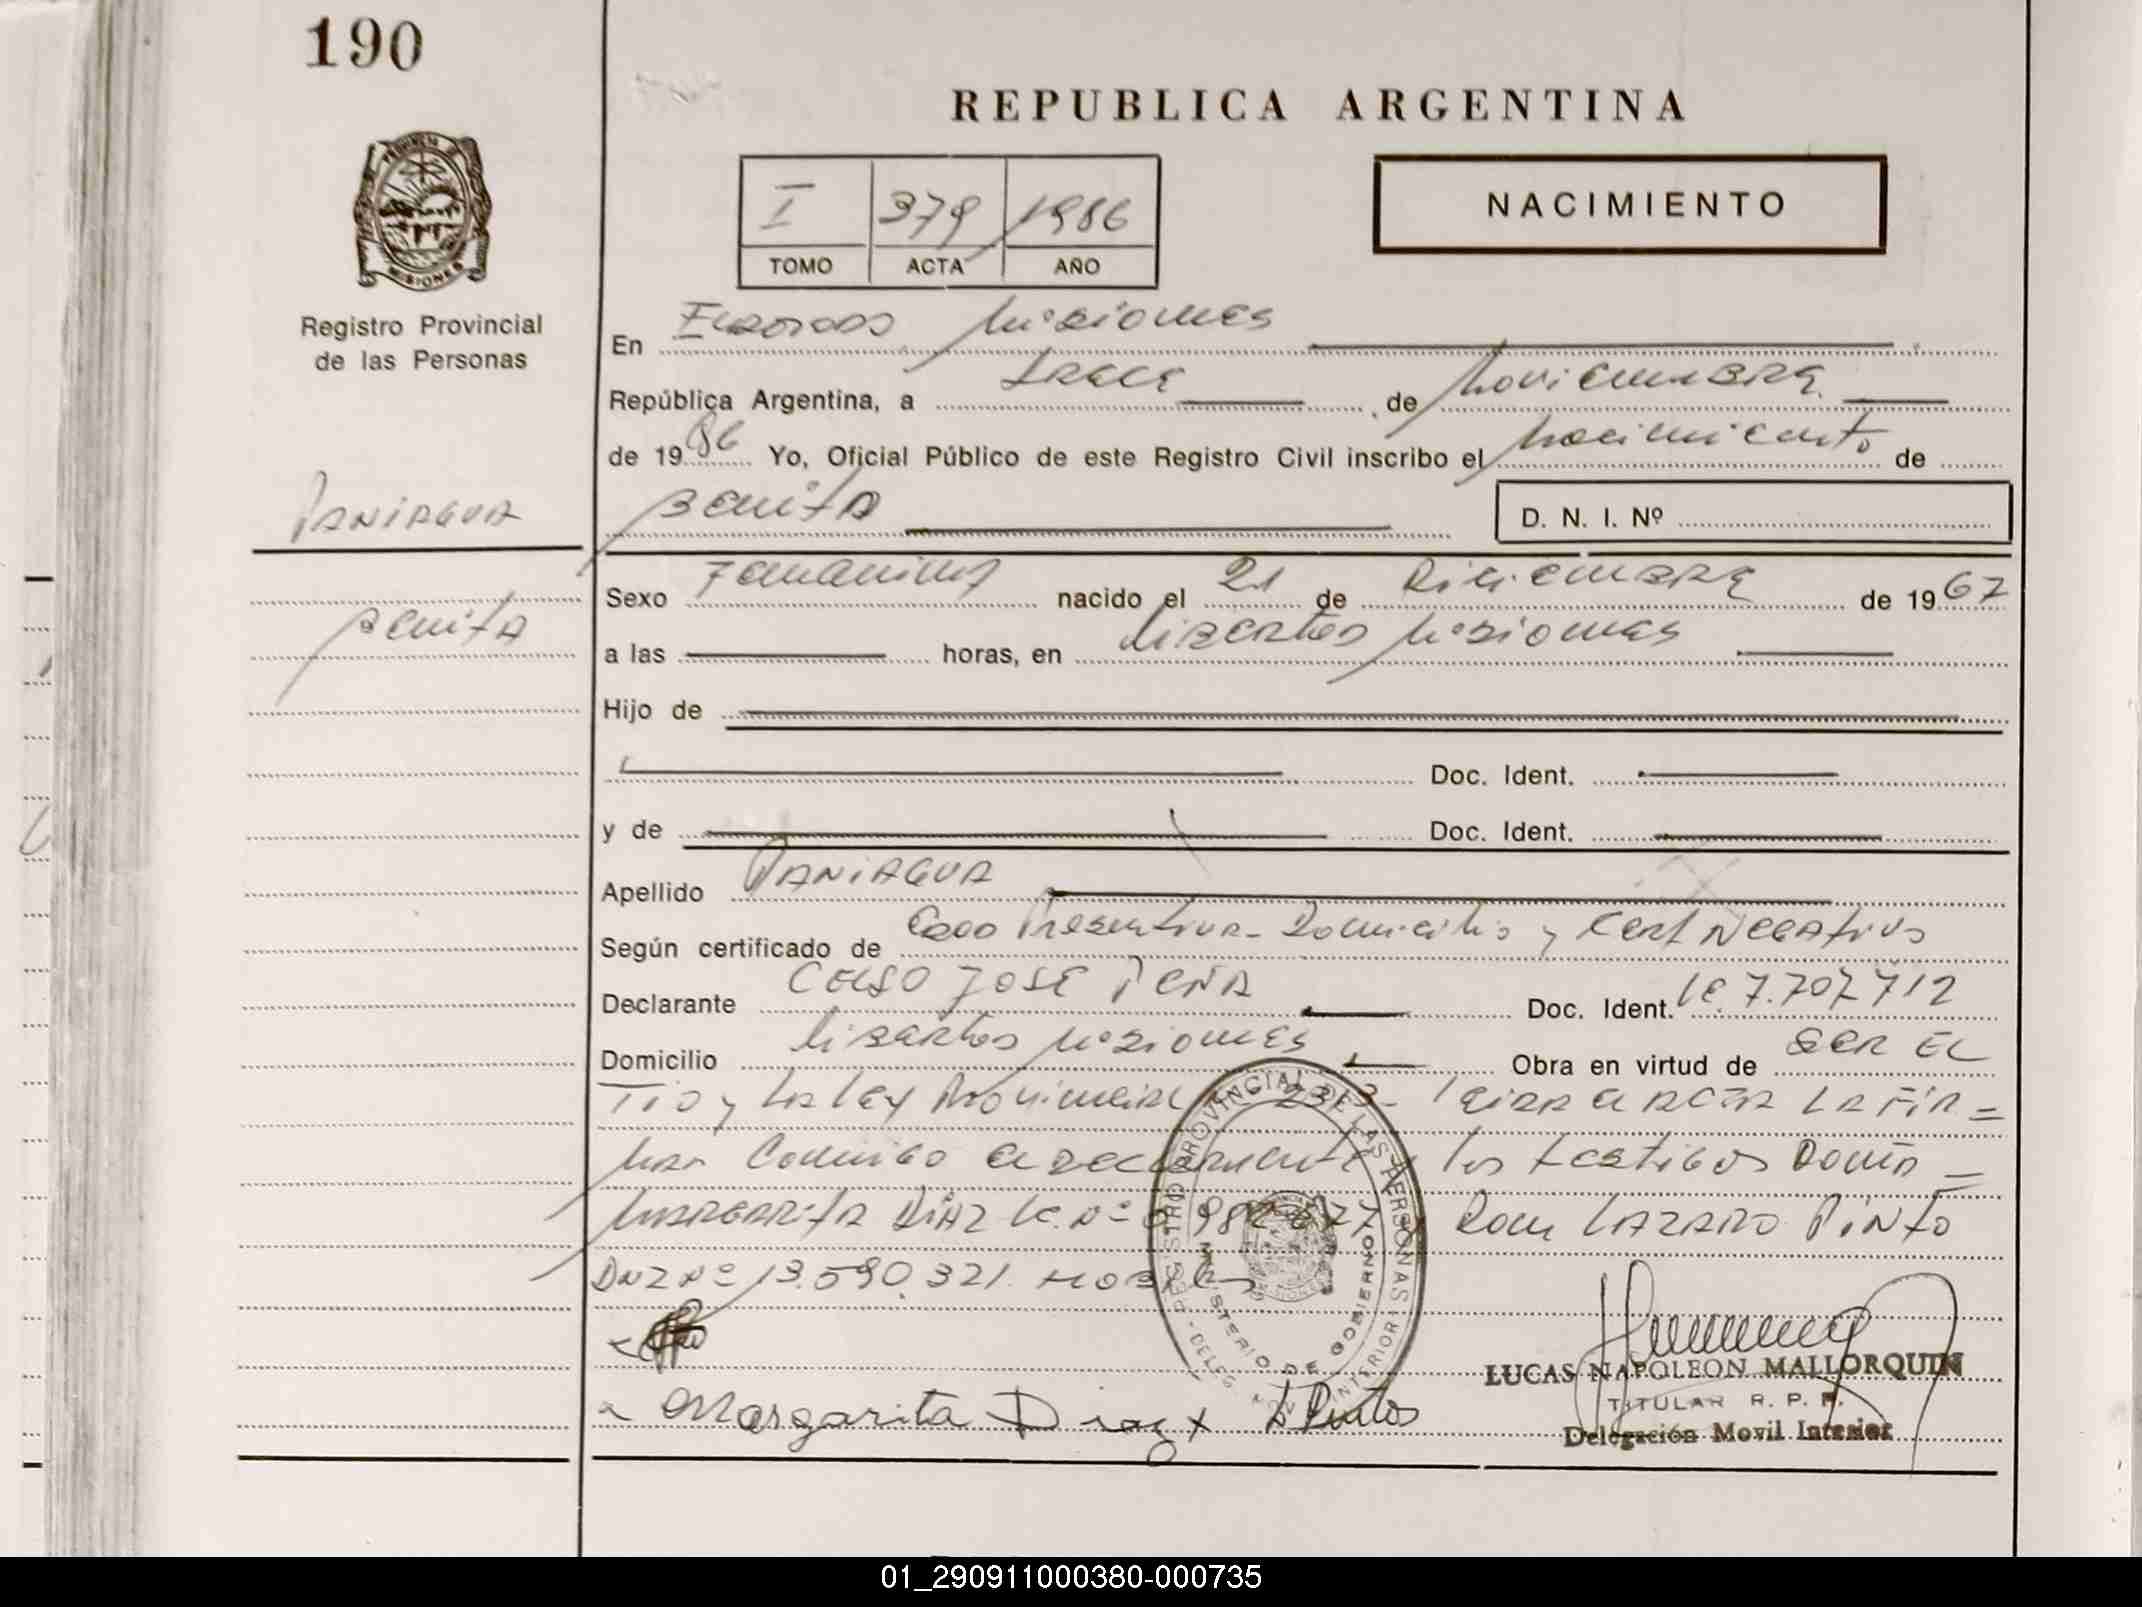 190
REPUBLICA ARGENTINA
NACIMIENTO
I 379 1986
TOMO ACTA AÑO
PROVINCIA DE MISIONES
Registro Provincial
de las Personas
En Eldorado Misiones
República Argentina, a trece de Noviembre
de 1986 Yo, Oficial Público de este Registro Civil inscribo el Nacimiento de
PANIAGUA
Benita
D. N. I. Nº
Benita
Sexo Femenino nacido el 21 de Diciembre de 1967
a las horas, en Libertad Misiones
Hijo de
Doc. Ident.
y de Doc. Ident.
Apellido PANIAGUA
Según certificado de Edad Presuntiva - Domicilio y Cert Negativo
Declarante CELSO JOSE PEÑA Doc. Ident. LE 7.707.712
Domicilio Libertad Misiones Obra en virtud de SER EL
TIO y La Ley Provincial Nº 2313 - Leida el Acta La Fir=
man Conmigo el declarante y los testigos Doña =
Margarita DIAZ LC. Nº 982 677 y Don LAZARO PINTO
DNI Nº 13.590.321.
REGISTRO PROVINCIAL DE LAS PERSONAS
MINISTERIO DE GOBIERNO
Margarita Diaz x L Pinto
LUCAS NAPOLEON MALLORQUIN
TITULAR R. P. P.
Delegación Movil Interior
01_290911000380-000735